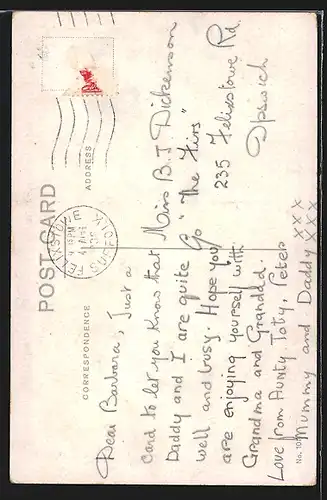 POST CARD
CORRESPONDENCE
ADDRESS
FELIXSTOWE
SUFFOLK
Dear Barbara, Just a
Card to let you know that
Daddy and I are quite
well and busy. Hope you
are enjoying yourself with
Grandma and Grandad.
Love from Aunty Toty, Peter
Mummy and Daddy x x x
x x x
Miss B. J. Dickenson
Go "The Firs"
235 Felixstowe Rd
Ipswich